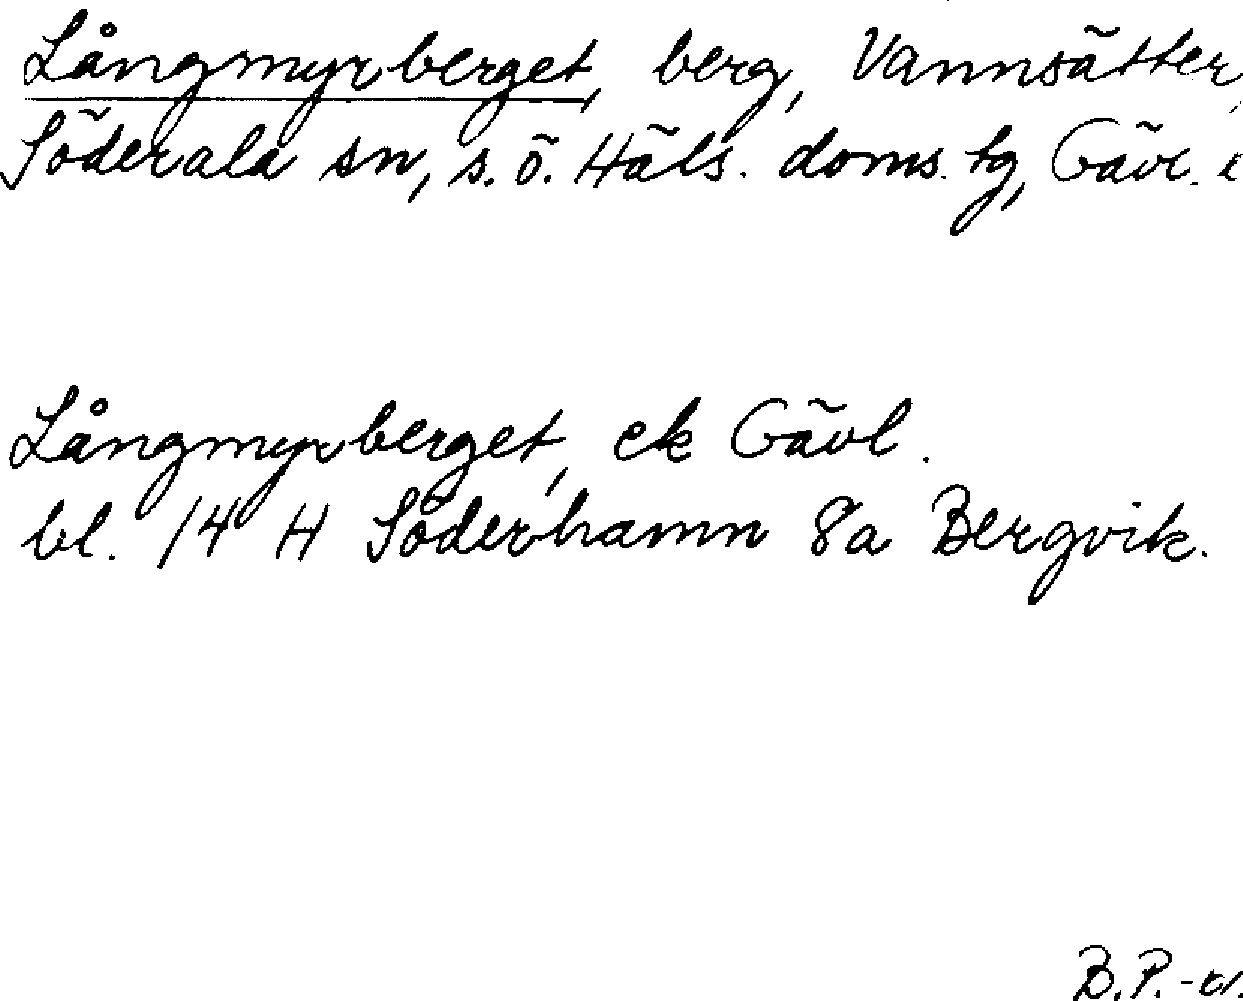 Långmyrberget, berg, Vannsätter,
Söderala sn, s.ö. Häls. doms. tg, Gävl.
Långmyrberget, ek Gävl.
bl. 14 H Söderhamn 8a Bergvik.
B.P.